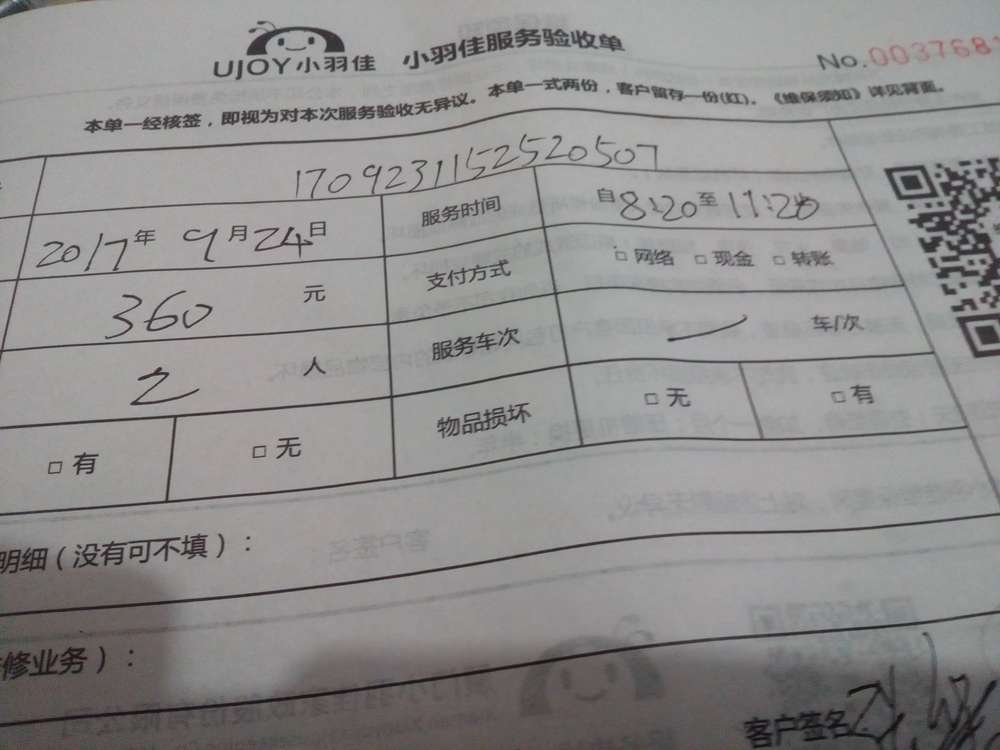 UJOY小羽佳 小羽佳服务验收单
No.003768
本单一经核签，即视为对本次服务验收无异议。本单一式两份，客户留存一份(红)。《维保须知》详见背面。
1709231152520507
2017年 9月24日 服务时间 自8:20至11:20
360 元 支付方式 □ 网络 □ 现金 □ 转账
2 人 服务车次 一 车/次
□ 有 □ 无 物品损坏 □ 无 □ 有
明细（没有可不填）：
修业务）：
客户签名